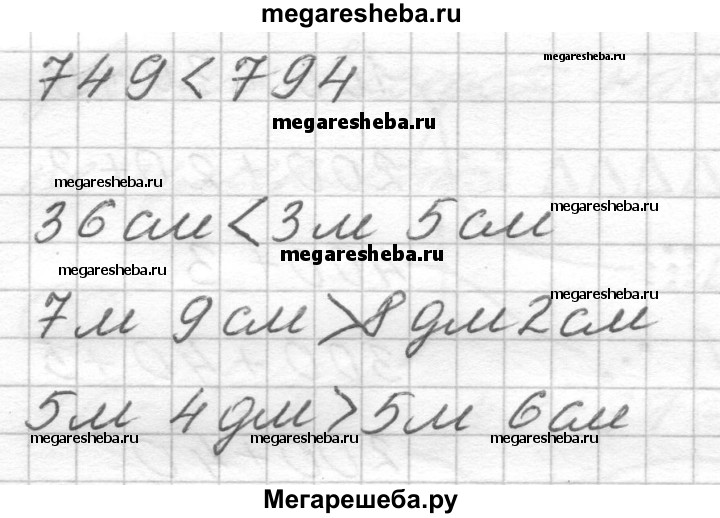 megaresheba.ru
749 < 794
megaresheba.ru
megaresheba.ru
megaresheba.ru
36 см < 3 м 5 см
megaresheba.ru
megaresheba.ru
megaresheba.ru
7 м 9 см > 8 дм 2 см
megaresheba.ru
5 м 4 дм > 5 м 6 см
megaresheba.ru
megaresheba.ru
megaresheba.ru
Мегарешеба.ру